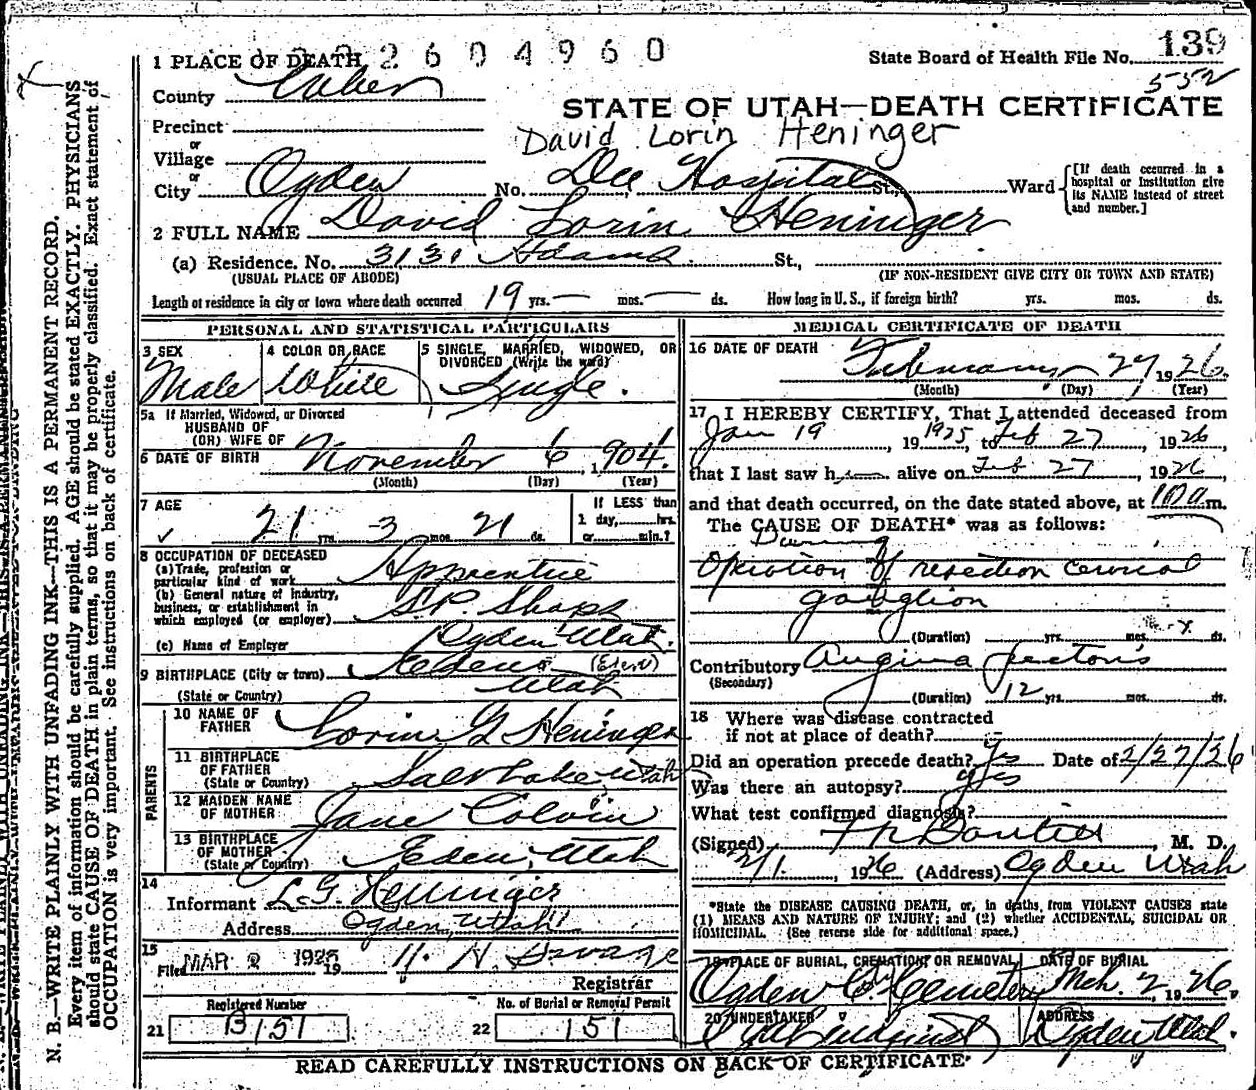 2 6 0 4 9 6 0
1 PLACE OF DEATH
State Board of Health File No. 139
552
County Weber
STATE OF UTAH—DEATH CERTIFICATE
Precinct
David Lorin Heninger
or
Village
or
City Ogden No. Dee Hospital St., Ward
[If death occurred in a hospital or institution give its NAME instead of street and number.]
2 FULL NAME David Lorin Heninger
(a) Residence. No. 3131 Adams St.,
(USUAL PLACE OF ABODE) (IF NON-RESIDENT GIVE CITY OR TOWN AND STATE)
Length of residence in city or town where death occurred 19 yrs. — mos. — ds. How long in U. S., if foreign birth? yrs. mos. ds.
PERSONAL AND STATISTICAL PARTICULARS
3 SEX
Male
4 COLOR OR RACE
White
5 SINGLE, MARRIED, WIDOWED, OR DIVORCED (Write the word)
Single.
5a If Married, Widowed, or Divorced
HUSBAND OF
(OR) WIFE OF
6 DATE OF BIRTH November 6, 1904.
(Month) (Day) (Year)
7 AGE
21 yrs. 3 mos. 21 ds.
If LESS than
1 day, hrs.
or min.?
8 OCCUPATION OF DECEASED
(a) Trade, profession or
particular kind of work Apprentice
(b) General nature of industry,
business, or establishment in
which employed (or employer) S.P. Shops
(c) Name of Employer Ogden Utah.
9 BIRTHPLACE (City or town) Eden (Eden)
(State or Country) Utah
PARENTS
10 NAME OF
FATHER Lorin G Heninger
11 BIRTHPLACE
OF FATHER
(State or Country) Salt Lake, Utah
12 MAIDEN NAME
OF MOTHER Jane Colvin
13 BIRTHPLACE
OF MOTHER
(State or Country) Eden, Utah
14
Informant L. G. Heninger
Address Ogden, Utah
15
Filed MAR 2 1926 19
Registrar
Registered Number
21 B151
No. of Burial or Removal Permit
22 151
MEDICAL CERTIFICATE OF DEATH
16 DATE OF DEATH
February 27 1926.
(Month) (Day) (Year)
17 I HEREBY CERTIFY, That I attended deceased from
Jan 19, 19 1925, to Feb 27, 1926,
that I last saw him alive on Feb 27, 1926,
and that death occurred, on the date stated above, at m.
The CAUSE OF DEATH* was as follows:
During
Operation of resection cervical
ganglion
(Duration) yrs. mos. ds.
Contributory Angina Pectoris
(Secondary)
(Duration) 12 yrs. mos. ds.
18 Where was disease contracted
if not at place of death?
Did an operation precede death? Yes Date of 2/27/26
Was there an autopsy? Yes
What test confirmed diagnosis?
(Signed), M. D.
1926 (Address) Ogden Utah
*State the DISEASE CAUSING DEATH, or, in deaths from VIOLENT CAUSES state
(1) MEANS AND NATURE OF INJURY; and (2) whether ACCIDENTAL, SUICIDAL OR
HOMICIDAL. (See reverse side for additional space.)
19 PLACE OF BURIAL, CREMATION OR REMOVAL
Ogden C. Cemetery
DATE OF BURIAL
Mch. 2, 1926.
20 UNDERTAKER
ADDRESS
Ogden Utah.
READ CAREFULLY INSTRUCTIONS ON BACK OF CERTIFICATE
N. B.—WRITE PLAINLY WITH UNFADING INK—THIS IS A PERMANENT RECORD.
Every item of information should be carefully supplied. AGE should be stated EXACTLY. PHYSICIANS
should state CAUSE OF DEATH in plain terms, so that it may be properly classified. Exact statement of
OCCUPATION is very important. See instructions on back of certificate.